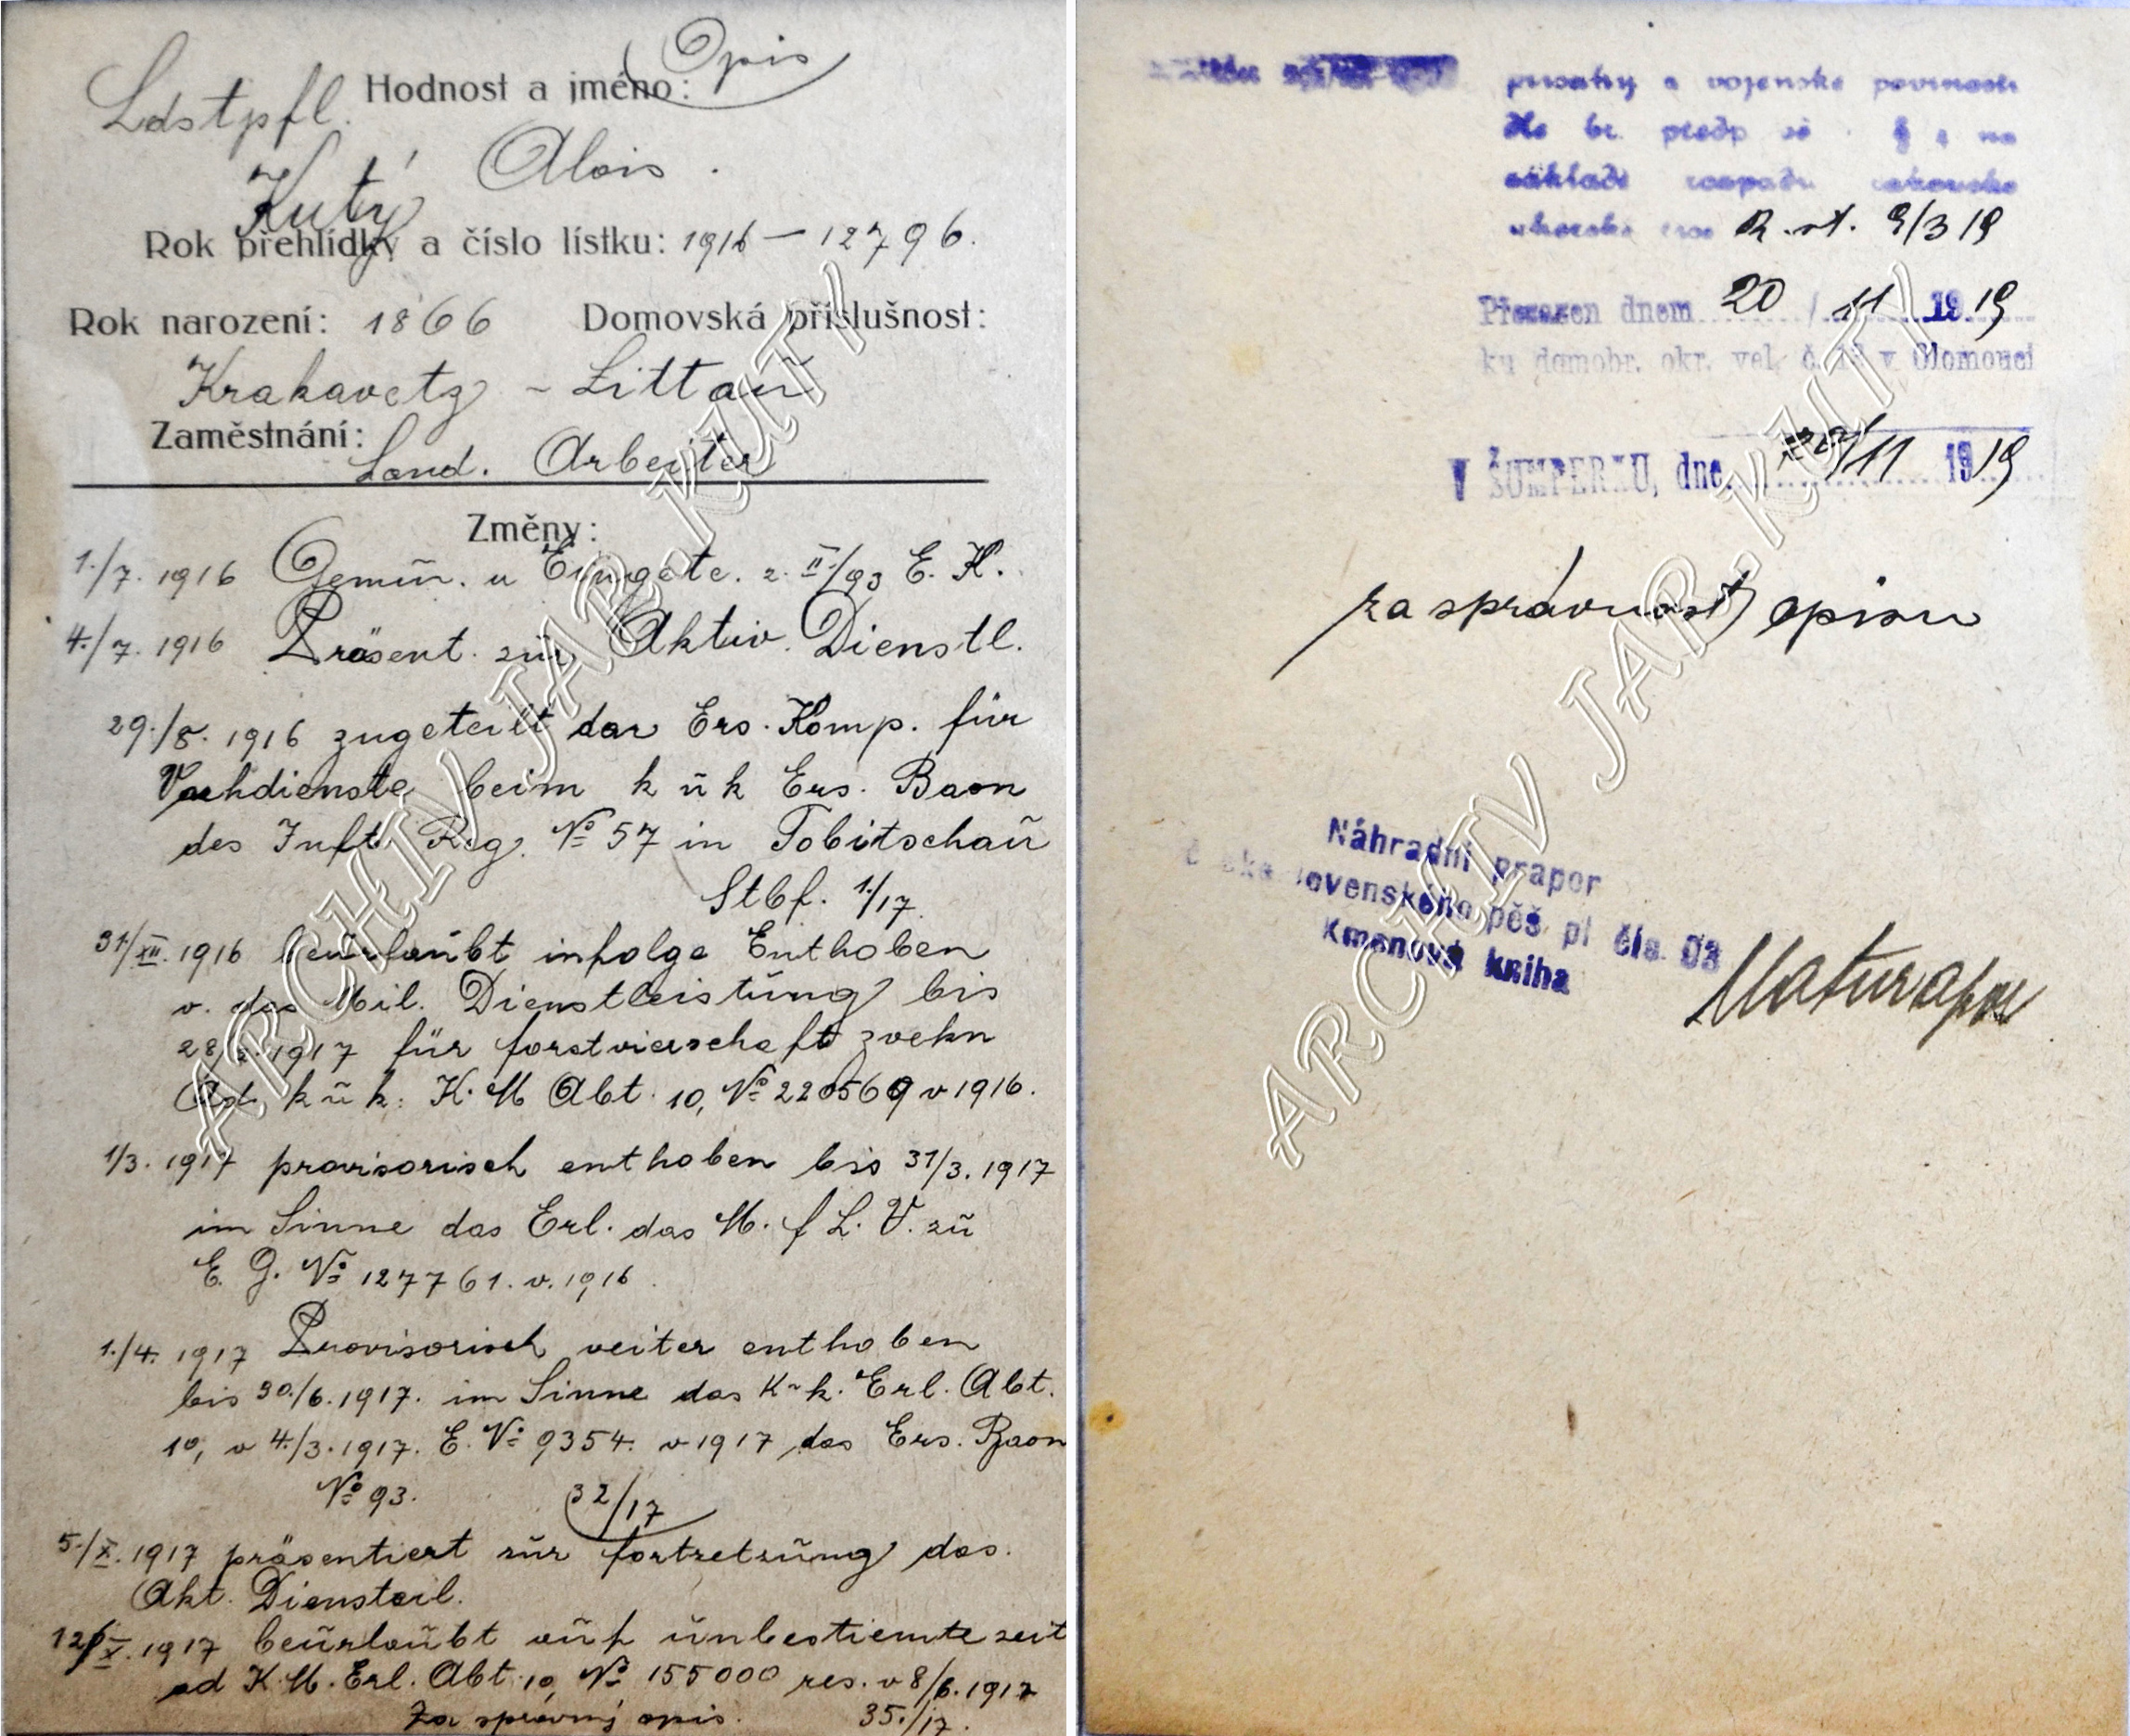 Opis
Hodnost a jméno:
Ldstpfl.
Kutý Alois.
Rok přehlídky a číslo lístku: 1916 – 12796.
Rok narození: 1866 Domovská příslušnost:
Krakavetz - Littaū
Zaměstnání: Land. Arbeiter
Změny:
1./7. 1916 u Eingete. z. II/93 E. K.
4./7. 1916 Präsent. zūr Aktiv. Dienstl.
29./8. 1916 zugeteilt dar Ers. Komp. für
Vachdienste beim k ū k Ers. Baon
des Inft Reg. № 57 in Tobitschaū
Stbf. 1./17.
31/XII. 1916 beūrlaūbt infolge Enthoben
v. das Mil. Dienstleistūng bis
1917 für forstvierschaft zvekn
k ū k. K. M Abt. 10, № 220569 v 1916.
1/3. 1917 provisorisch enthoben bis 31/3. 1917
im Sinne das Erl. das M. f L. V. zū
E. G. № 127761. v. 1916.
1./4. 1917 Provisorisch veiter enthoben
bis 30./6. 1917. im Sinne das K k. Erl. Abt.
10, v 4./3. 1917. E. № 9354. v 1917 das Ers. Baon
№ 93. 32/17
5./X. 1917 präsentiert zūr fortzetzūng das.
Akt. Diensteil.
12/X. 1917 beūrlaūbt aūf ūnbestiemte zeit
ad K. M. Erl. Abt. 10, № 155000 res. v 8/6. 1917
Za správný opis. 35./17.
přísahy a vojenské povinnosti
dle br. předp
základě rozpadu rakousko
uherské R. st. 9/3 19
Přeřazen dnem 20 / 11 1919
ku domobr. okr. vel. č. 13 v Olomouci
V ŠUMPERKU, dne 22/11 1919
za správnost opisu
Náhradní prapor
československého pěš. pl čís. 93
Kmenová kniha
ARCHIV JAR. KUTÝ
ARCHIV JAR. KUTÝ